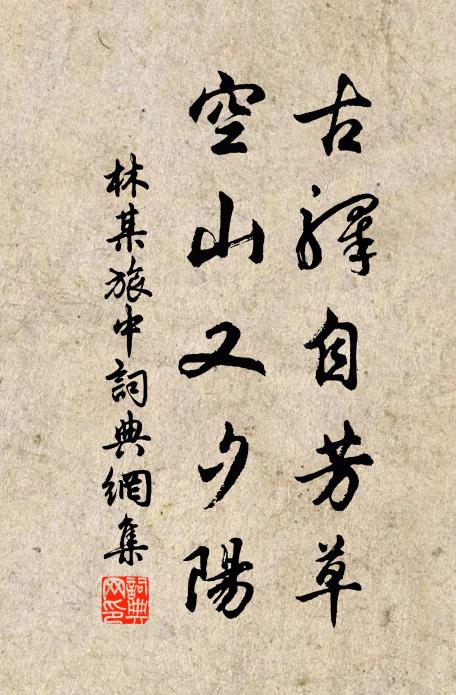 古驛自芳草
空山又夕陽
林某旅中詞典網集
詞典网印